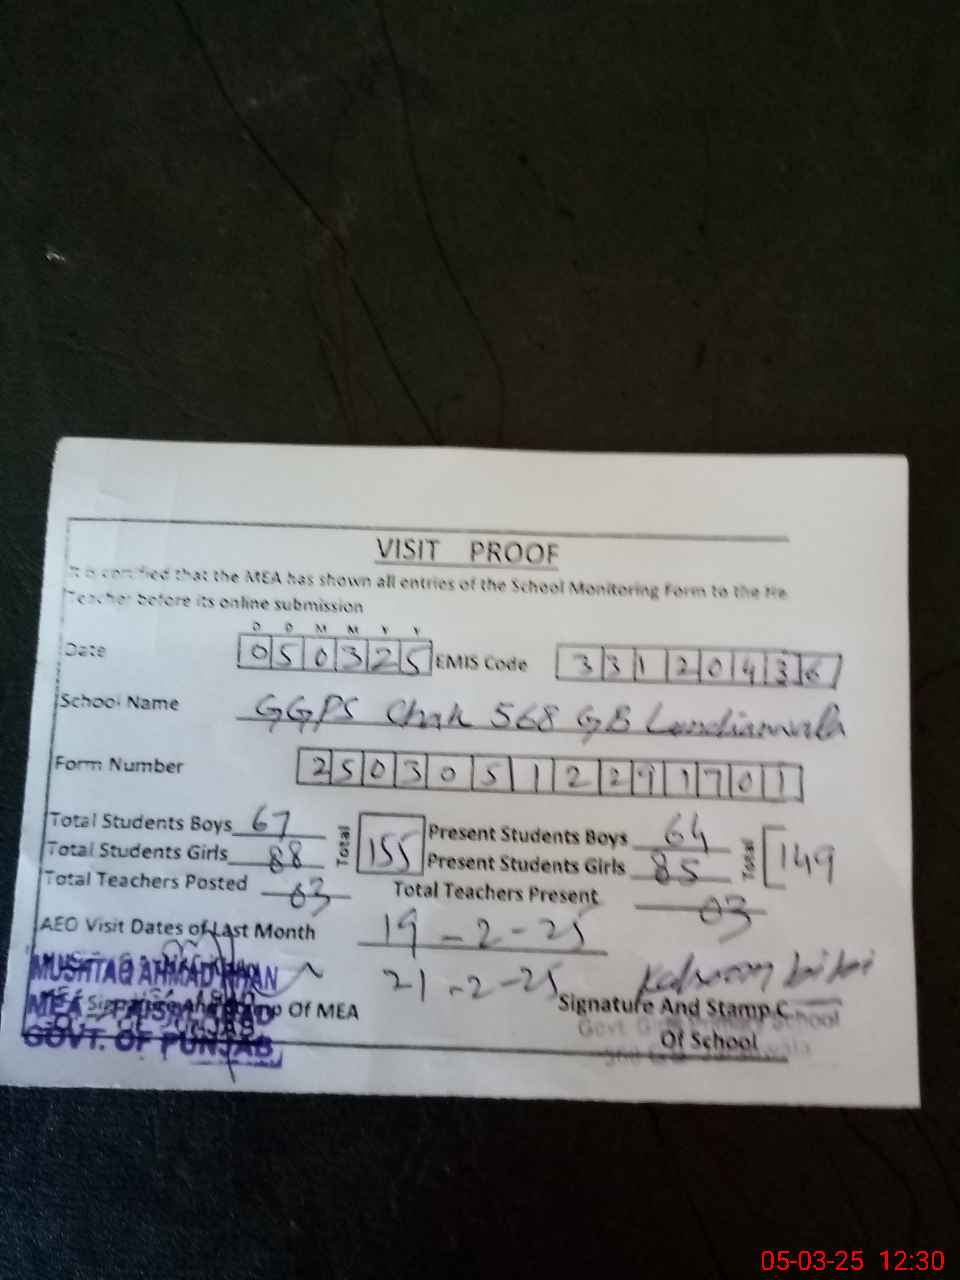 VISIT PROOF
It is certified that the MEA has shown all entries of the School Monitoring Form to the He
Teacher before its online submission
D D M M Y Y
Date 050325 EMIS Code 33120436
School Name GGPS Chak 568 GB Lundianwala
Form Number 25030512291701
Total Students Boys 67 Total 155 Present Students Boys 64 Total 149
Total Students Girls 88 Present Students Girls 85
Total Teachers Posted 03 Total Teachers Present 03
AEO Visit Dates of Last Month 19-2-25
21-2-25
MUSHTAQ AHMAD KHAN
MEA FAISALABAD
GOVT. OF PUNJAB
Signature And Stamp Of MEA
Signature And Stamp
Of School
05-03-25 12:30